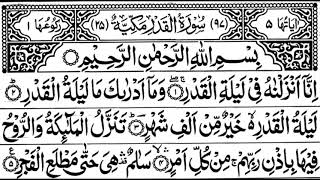 اٰیَاتُهَا ۵ (۹۷) سُوْرَةُ الْقَدْرِ مَكِّيَّةٌ (۲۵) رُكُوْعُهَا ۱
بِسْمِ اللّٰهِ الرَّحْمٰنِ الرَّحِيْمِ
اِنَّاۤ اَنْزَلْنٰهُ فِیْ لَیْلَةِ الْقَدْرِ ۚۖ﴿۱﴾ وَمَاۤ اَدْرٰىكَ مَا لَیْلَةُ الْقَدْرِ ؕ﴿۲﴾
لَیْلَةُ الْقَدْرِ ۙ۬ خَیْرٌ مِّنْ اَلْفِ شَهْرٍ ؕ﴿۳﴾ تَنَزَّلُ الْمَلٰٓىِٕكَةُ وَالرُّوْحُ
فِیْهَا بِاِذْنِ رَبِّهِمْ ۚ مِنْ كُلِّ اَمْرٍ ۙ﴿۴﴾ سَلٰمٌ ۛ۫ هِیَ حَتّٰی مَطْلَعِ الْفَجْرِ ﴿۵﴾